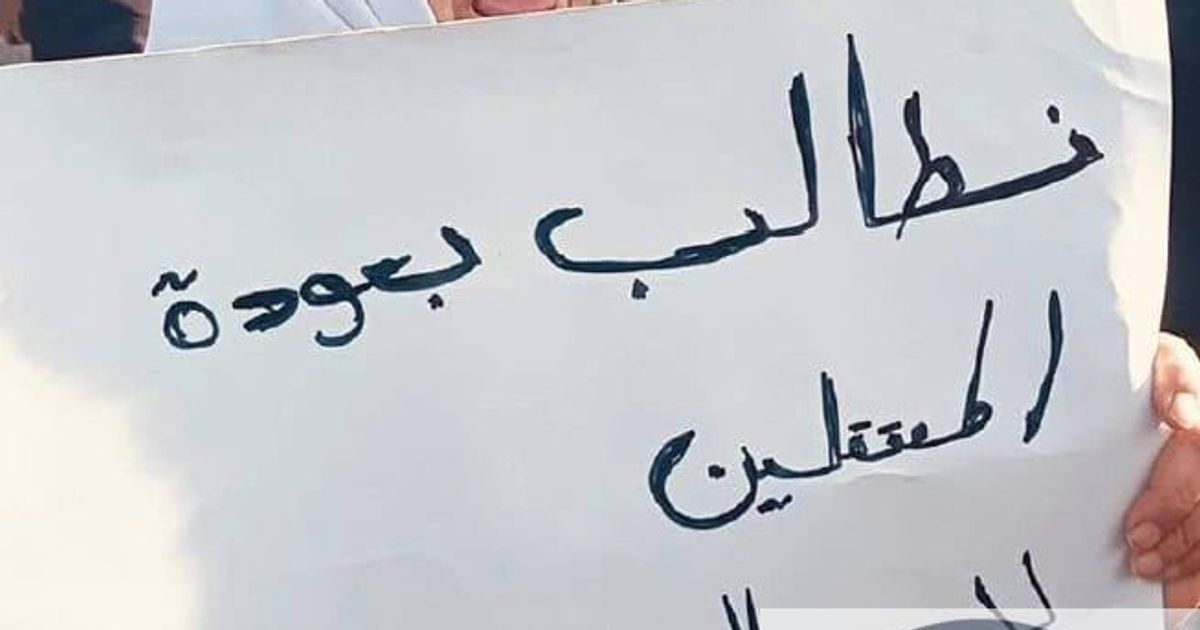 نطالب بعودة
المعتقلين